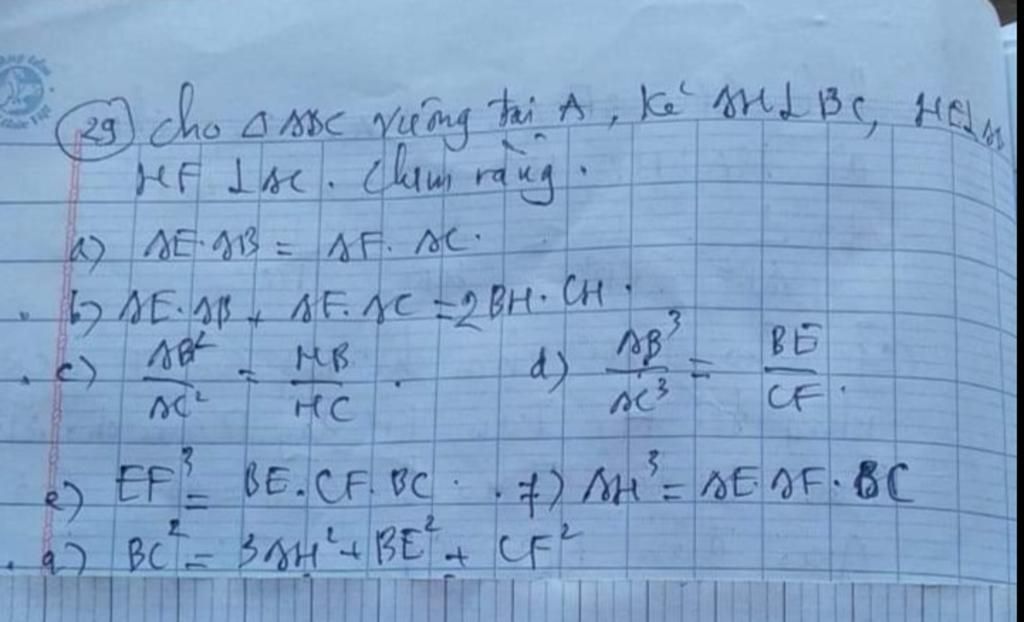 29) Cho △ABC vuông tại A, Kẻ AH⊥BC, HE⊥AB
HF ⊥AC. Chứm rằng.
a) AE.AB = AF.AC.
b) AE.AB + AF.AC = 2BH.CH.
c) AB²/AC² = HB/HC. d) AB³/AC³ = BE/CF.
e) EF³ = BE.CF.BC. f) AH³ = AE.AF.BC
g) BC² = 3AH² + BE² + CF²